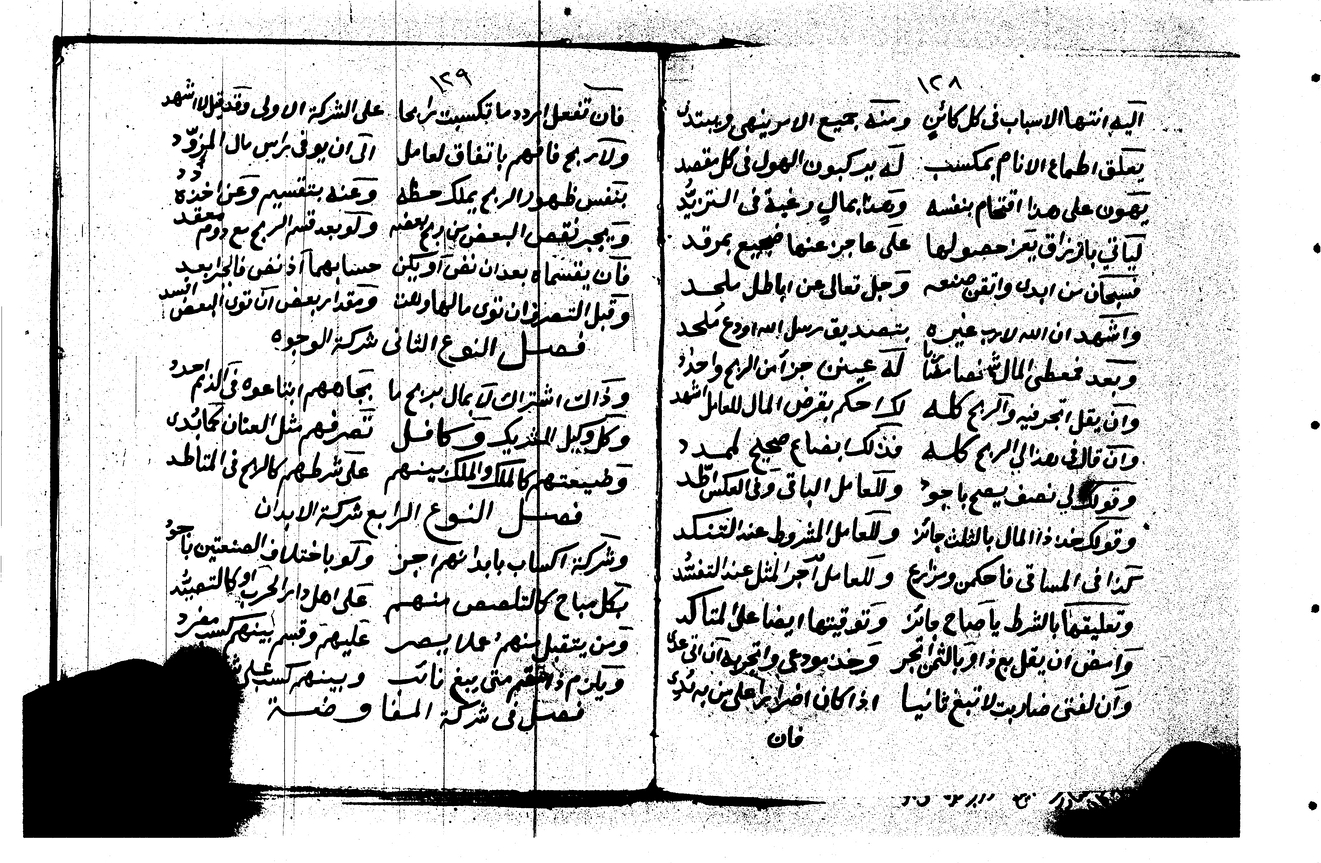 ١٢٨
اليه انتها الاسباب في كل كائن ومنه جميع الامر ينهي ويبتدى
يعلق اطماع الانام بمكسب له يركبون الهول في كل مقصد
يهون على هذا اقتحام بنفسه وهذا بمال رغبة في التزيّد
لياتي بارزاق يعز حصولها على عاجز عنها ضجيع بمرقد
فسبحان من ابدى واتقن صنعه وجل تعالى عن اباطل ملحد
واشهد ان الله لا رب غيره بتصديق رسل الله اودع ملحد
وبعد فمعطي المال نصا معينا له عين جزأ من الربح واحد
وان يقل اتجر فيه والربح كله لك احكم بقرض المال للعامل اشهد
وان قال في هذا لي الربح كله فذلك ابضاع صحيح لممدد
وقولك لي نصف يصح باجود وللعامل الباقي وفي العكس اطد
وقولك خذ ذا المال بالثلث جائز وللعامل المشروط عند التنكد
كذا في المساقي فاحكمن ومزارع وللعامل اجر المثل عند التفسد
وتعليقها بالشرط يا صاح جائز وتوقيتها ايضا على المتاكد
وامض ان يقل بع ذا وبالثمن اتجر وخذ مودعي واتجر به ان اتى عدى
وان لفتى ضاربت لا تبغ ثانيا اذا كان اضرارا على من به بدى
فان
١٢٩
فان تفعل اردد ما تكسبت رابحا على الشركة الاولى وقد قيل لا اشهد
ولا ربح فافهم باتفاق لعامل الى ان يوفى راس مال المزود
بنفس ظهور الربح يملك حظه وعنه بتقسيم وعن اخذه قد
ويجبر نقص البعض من ربح بعضه ولو بعد قسم الربح مع دوم معقد
فان يقسماه بعد ان نض او يكن حسابهما اذ نض فالجبر ابعد
وقبل التصرف ان توى مالها وهت ومقدار بعض ان توى البعض افسد
فصل النوع الثاني شركة الوجوه
وذاك اشتراك لا بمال بربح ما بجاههم ابتاعوه في الذمم احدد
وكل وكيل للشريك وكافل تصرفهم مثل العنان كما بدى
وطبيعتهم كالملك والملك بينهم على شرطهم كالربح في المتاطد
فصل النوع الرابع شركة الابدان
وشركة اكساب بابدانهم اجز ولو باختلاف الصنعتين باجود
بكل مباح كالتلصص منهم على اهل دار الحرب او كالتصيد
ومن يتقبل منهم عملا يصر عليهم وقسم بينهم كسب مفرد
ويلزم ذا متى يبغ نائب وبينهم كسب على
فصل في شركة المفاوضة